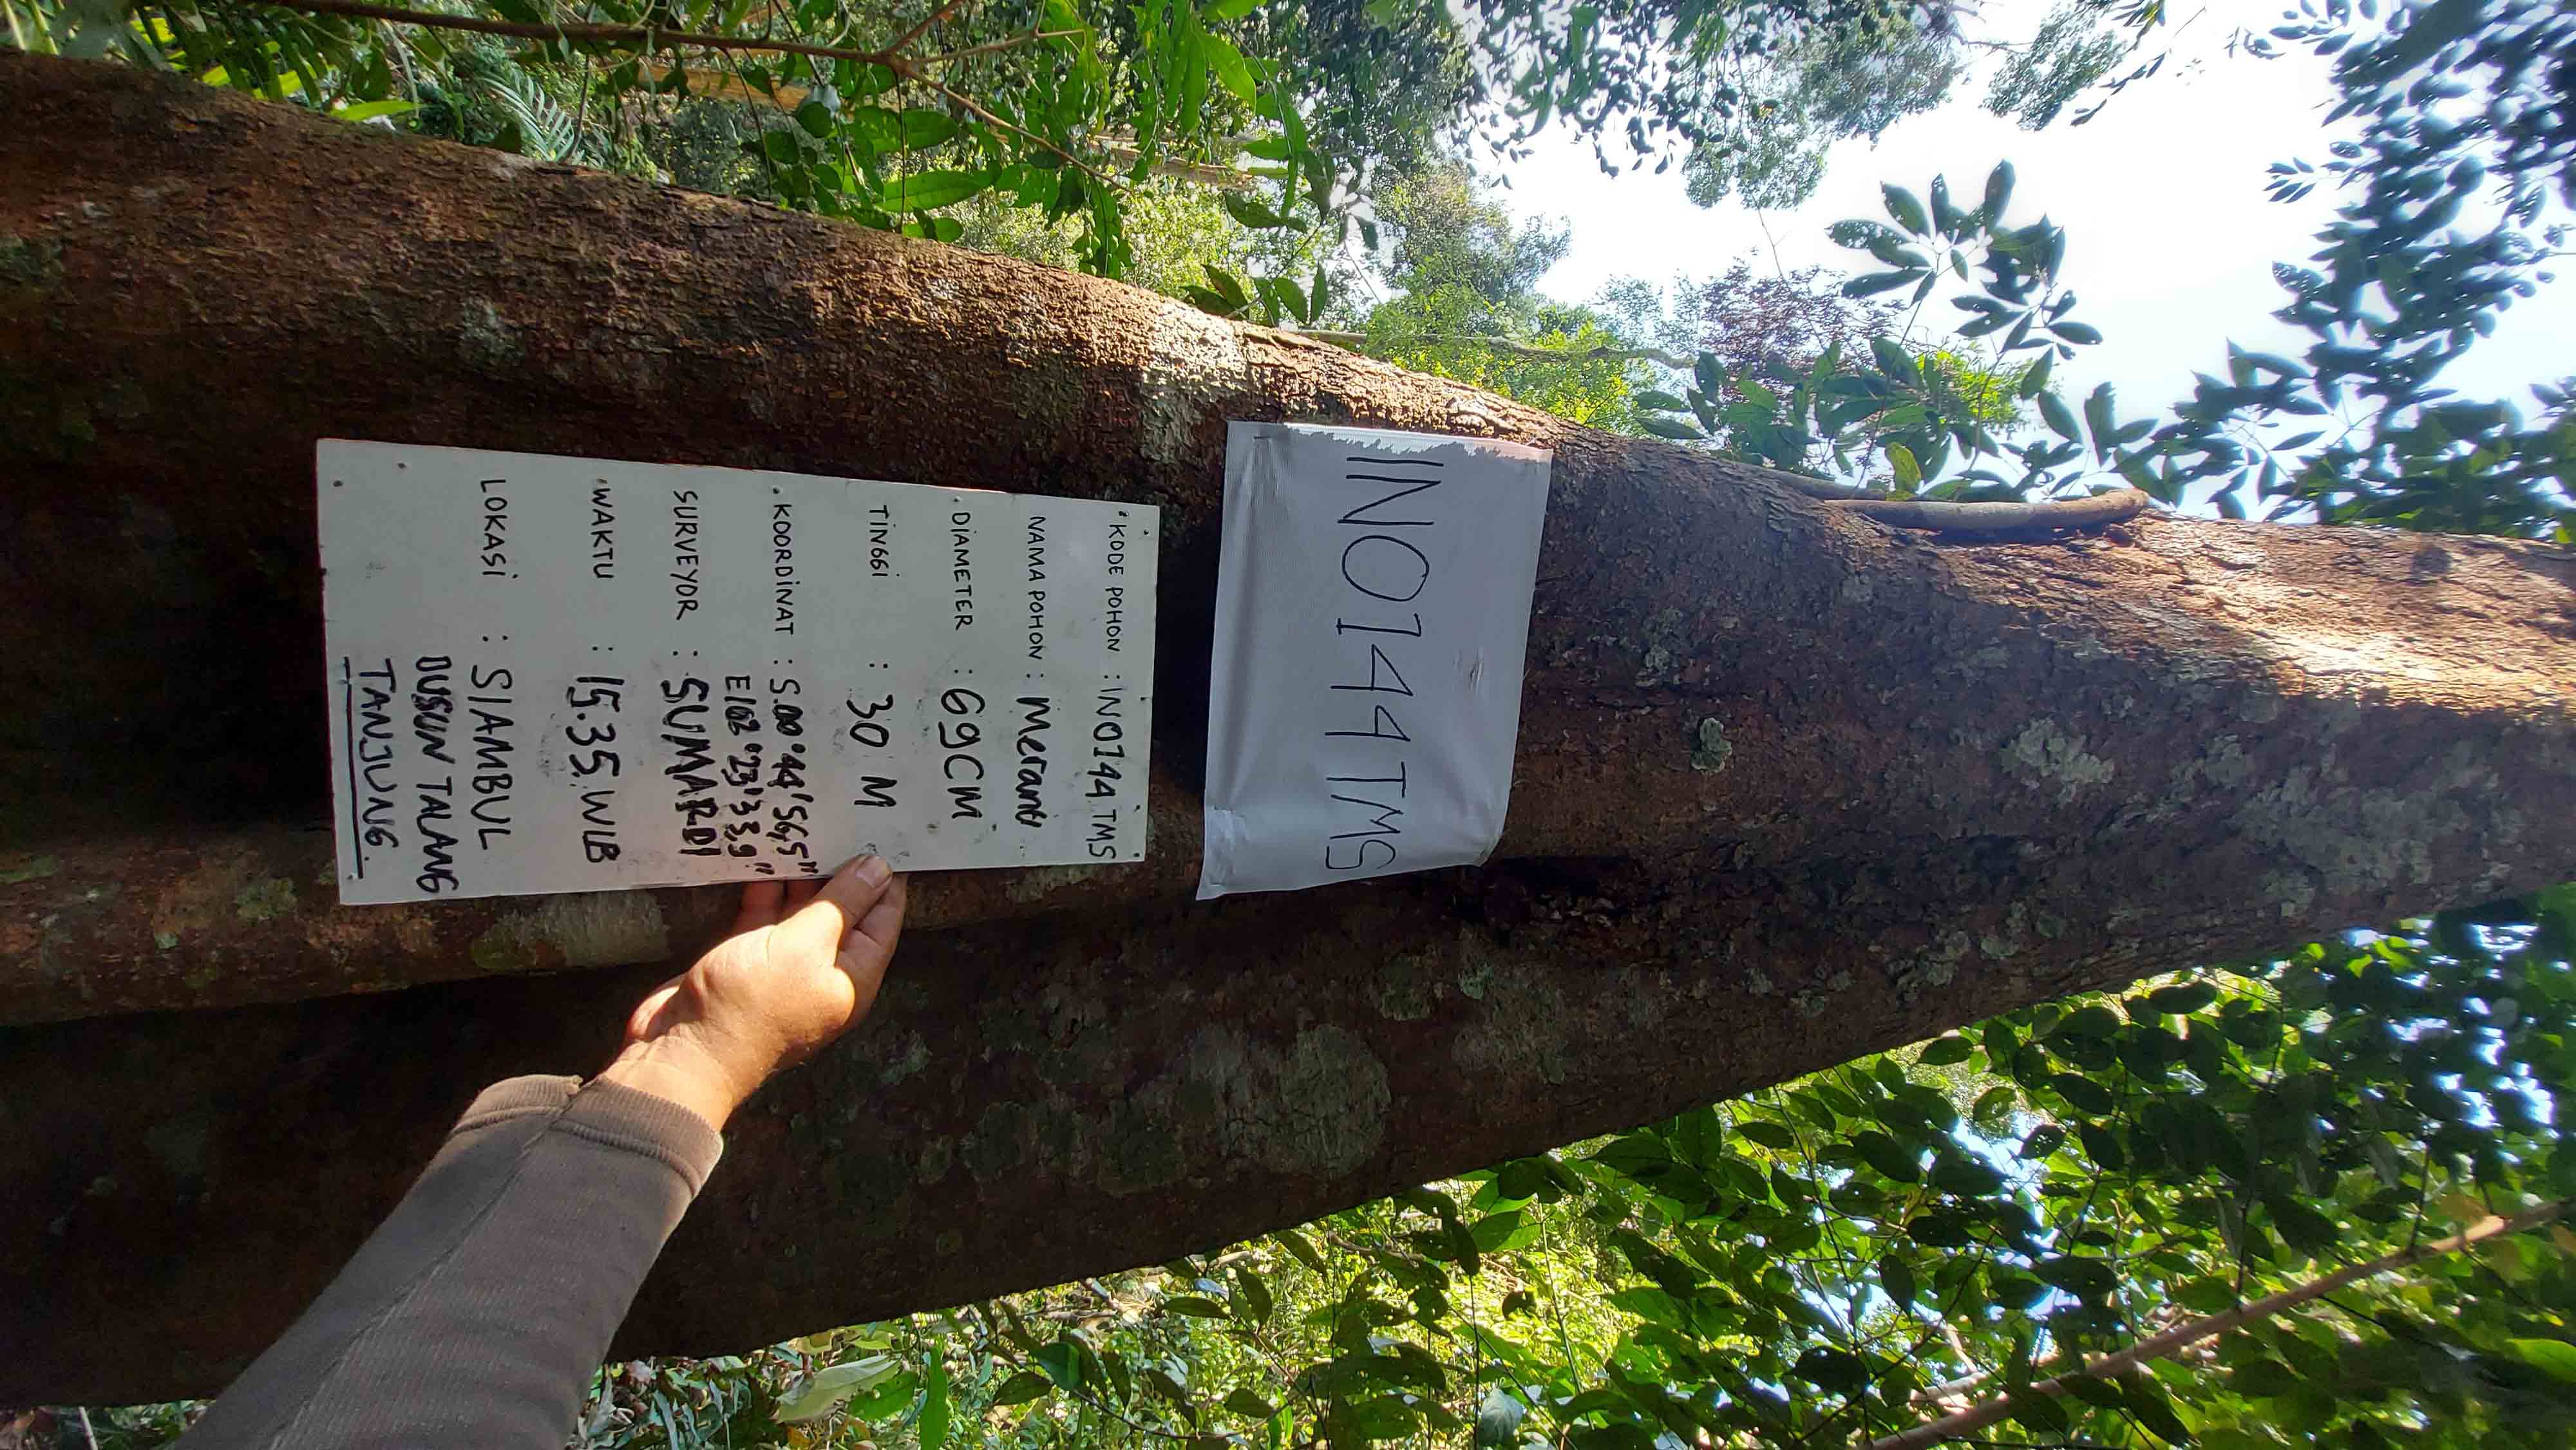 INO144TMS
• KODE POHON : INO144 TMS
NAMA POHON : Meranti
• DIAMETER : 69CM
TINGGI : 30 M
• KOORDINAT : S.00°44'56,5"
E102°23'33,9"
SURVEYOR : SUMARDI
• WAKTU : 15.35.WIB
LOKASI : SIAMBUL
DUSUN TALANG
TANJUNG.